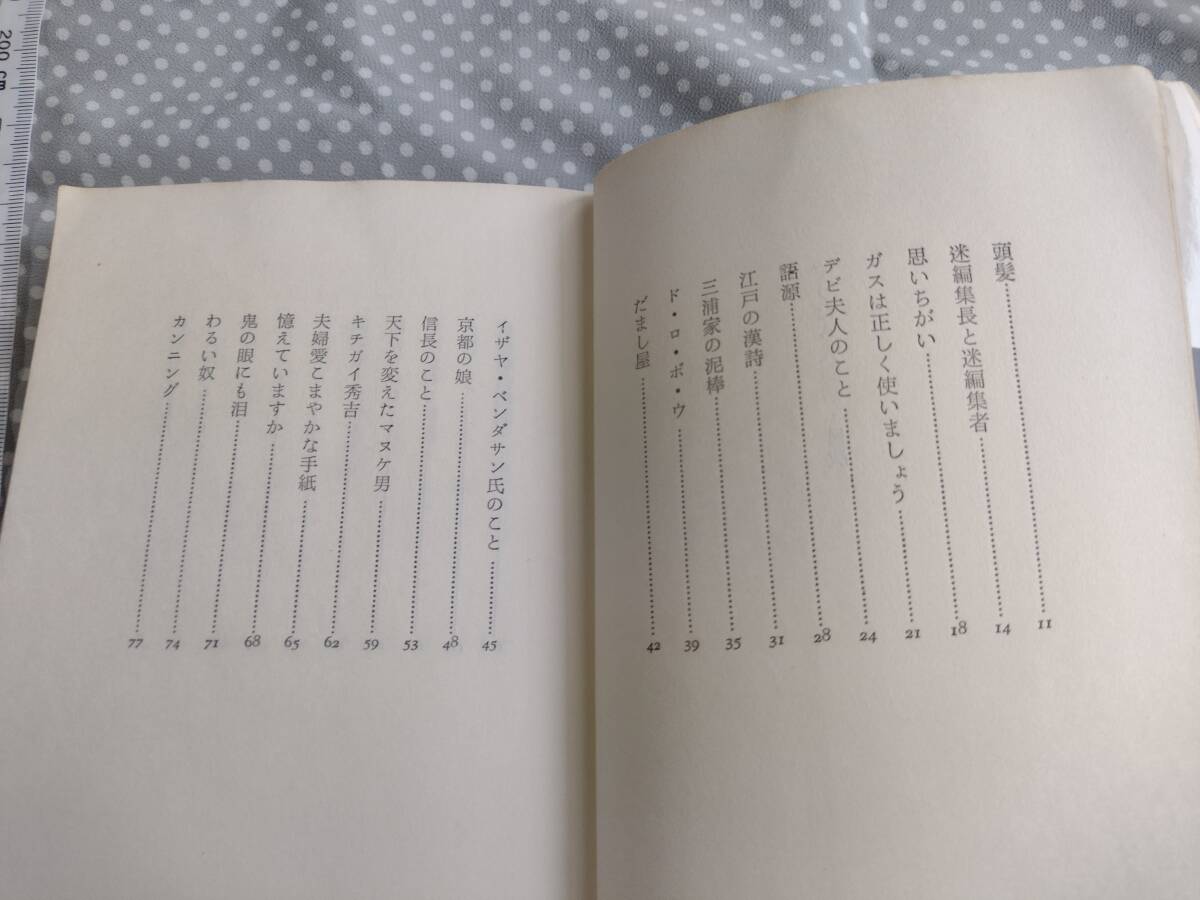 頭髪……11
迷編集長と迷編集者……14
思いちがい……18
ガスは正しく使いましょう……21
デビ夫人のこと……24
語源……28
江戸の漢詩……31
三浦家の泥棒……35
ド・ロ・ボ・ウ……39
だまし屋……42
イザヤ・ベンダサン氏のこと……45
京都の娘……48
信長のこと……53
天下を変えたマヌケ男……59
キチガイ秀吉……62
夫婦愛こまやかな手紙……65
憶えていますか……68
鬼の眼にも泪……71
わるい奴……74
カンニング……77
200 cm